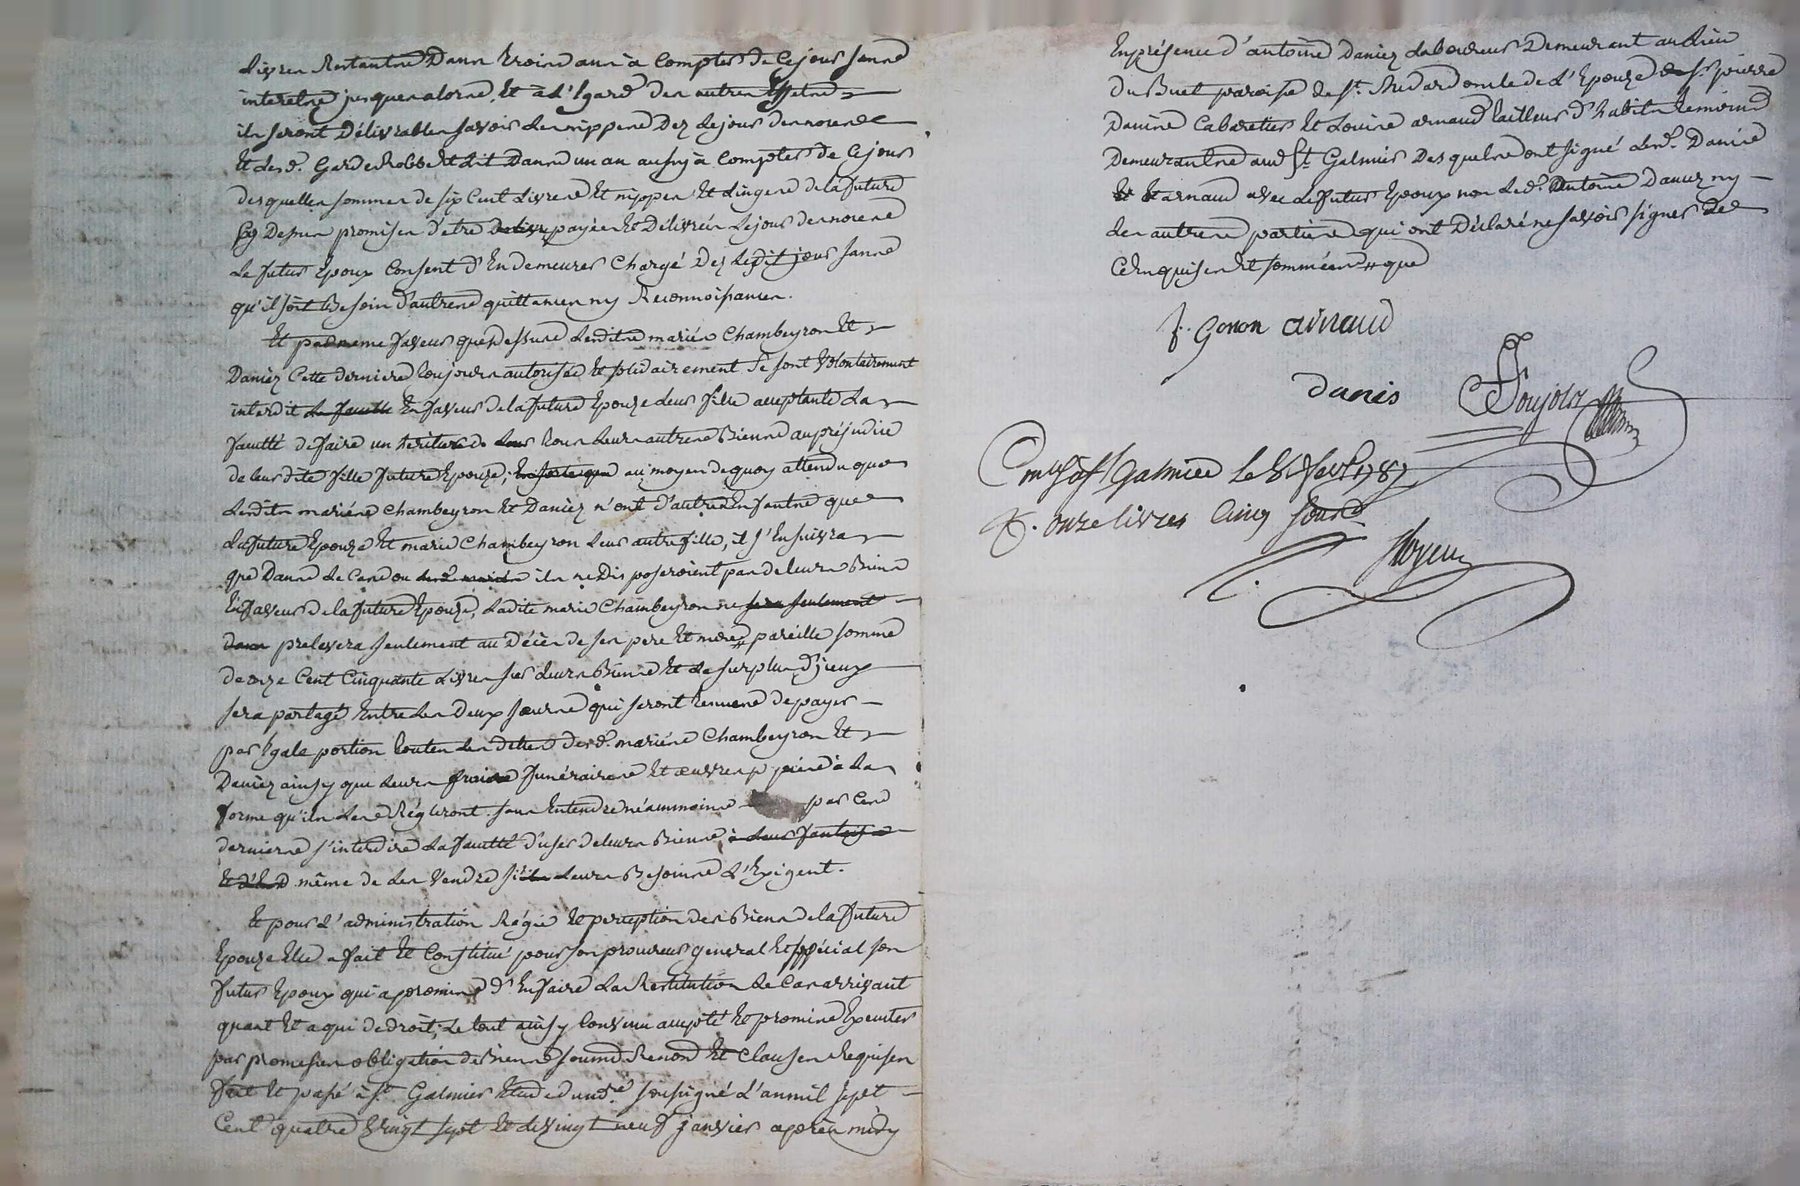 Livres Restantes Dans trois ans à Compter de Ce jour sans
interetes jusques alors, Et à L'Egard des autres Effets
ils seront Délivrables savoir Les nippes Dez Le jour des noces
Et Lesd. Garderobbe Et Lit Dans un an aussy à Compter de Ce jour
desquelles sommes de six Cent Livres Et nippes Et Linges de la future
Cy Dessus promises d'etre payées Et Délivrées Le jour des noces
Le futur Epoux Consent d'En demeurer Chargé Dez Ledit jour sans
qu'il soit Besoin d'autres quittances ny Reconnoissances.
Et par meme faveur que dessus Lesdits mariés Chambeyron Et
Daniez Cette derniere toujours autorisée Et solidairement se sont Volontairement
interdit En faveur de la future Epouze Leur fille acceptante La
faculté de faire un heritier de tous Leurs autres Biens au préjudice
de leurdite fille future Epouze, au moyen de quoy attendu que
Lesdits mariés Chambeyron Et Daniez n'ont d'autres Enfants que
La future Epouze Et marie Chambeyron Leur autre fille, il s'Ensuivra
que Dans Le Cas ou ils ne Disposeroient pas de leurs Biens
En faveur de la future Epouze, Ladite marie Chambeyron ne
prelevera seulement au Décès de ses pere Et mere pareille somme
de onze Cent Cinquante Livres sur Leurs Biens Et Le surplus d'iceux
sera partagé Entre Les Deux sœurs qui seront tenues de payer
par Egale portion toutes Les dettes desd. mariés Chambeyron Et
Daniez ainsy que Leurs frais funéraires Et œuvres pies à La
forme qu'ils Les Régleront sans Entendre néammoins par Ces
dernieres s'interdire La faculté d'user de leurs Biens
même de Les Vendre si Leurs Besoins L'Exigent.
Et pour L'administration Régie Et perception des Biens de la future
Epouze Elle a fait Et Constitué pour son procureur general Et spécial son
futur Epoux qui a promis d'En faire La Restitution Le Cas arrivant
quant Et a qui de droit, Le tout ainsy Convenu accepté Et promis Executer
par promesses obligation de Biens soumis Renon Et Clauses Requises
fait Et passé à St. Galmier Etude dud. soussigné L'an mil sept
Cent quatre Vingt sept Et Le vingt neuf janvier après midy
En présence d'antoine Daniez Laboureur Demeurant au Lieu
du Buet paroisse de St. Medard oncle de L'Epouze Sr. pierre
Danis Cabaretier Et Louis arnaud tailleur d'habits temoins
Demeurants aud St. Galmier Desquels ont signé Lesd. Danis
Et arnaud avec Le futur Epoux non Led. Antoine Daniez ny
Les autres parties qui ont Déclaré ne savoir signer de
Ce Enquises Et sommées que
f. Gonon arnaud
danis
Poujols
Con. à St Galmier Le 8 fevr. 1787
R. onze livres Cinq sous